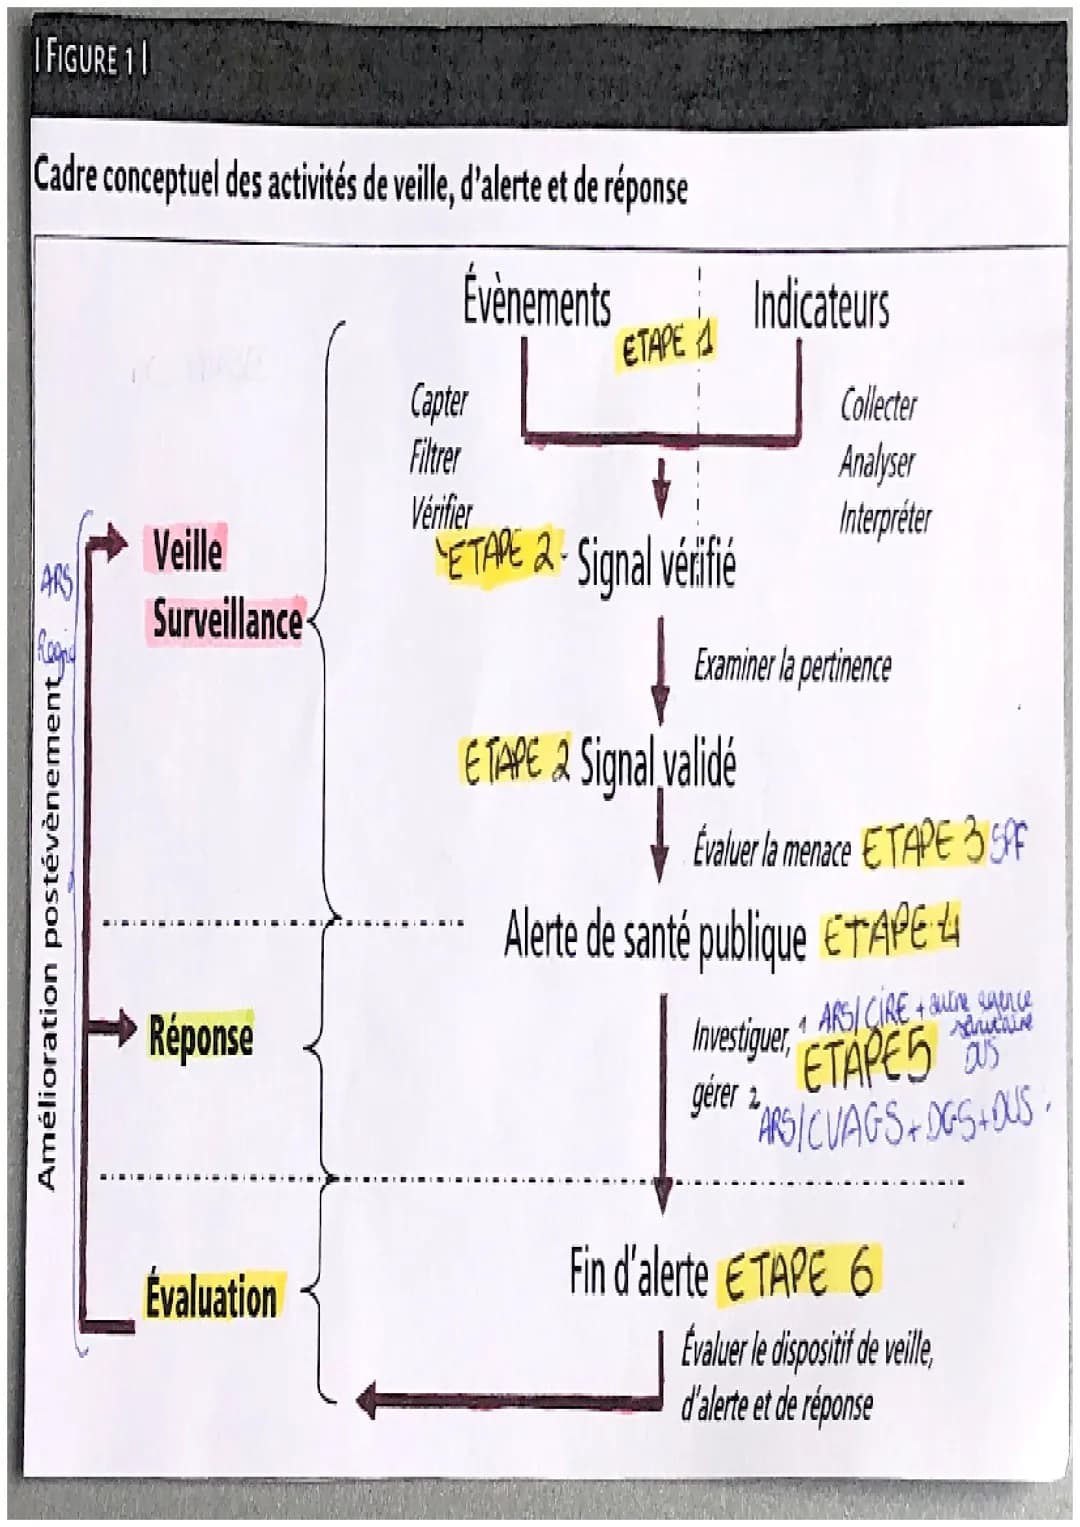 | FIGURE 1 |
Cadre conceptuel des activités de veille, d'alerte et de réponse
Évènements
Indicateurs
ETAPE 1
Capter
Filtrer
Vérifier
Collecter
Analyser
Interpréter
ETAPE 2 - Signal vérifié
Examiner la pertinence
ETAPE 2 Signal validé
Évaluer la menace ETAPE 3 SPF
Alerte de santé publique ETAPE 4
Investiguer, 1 ARS/CIRE + autre agence
sanitaire
ETAPE 5 DUS
gérer 2
ARS/CVAGS + DGS + DUS.
Fin d'alerte ETAPE 6
Évaluer le dispositif de veille,
d'alerte et de réponse
Veille
Surveillance
Réponse
Évaluation
ARS
Amélioration postévènement